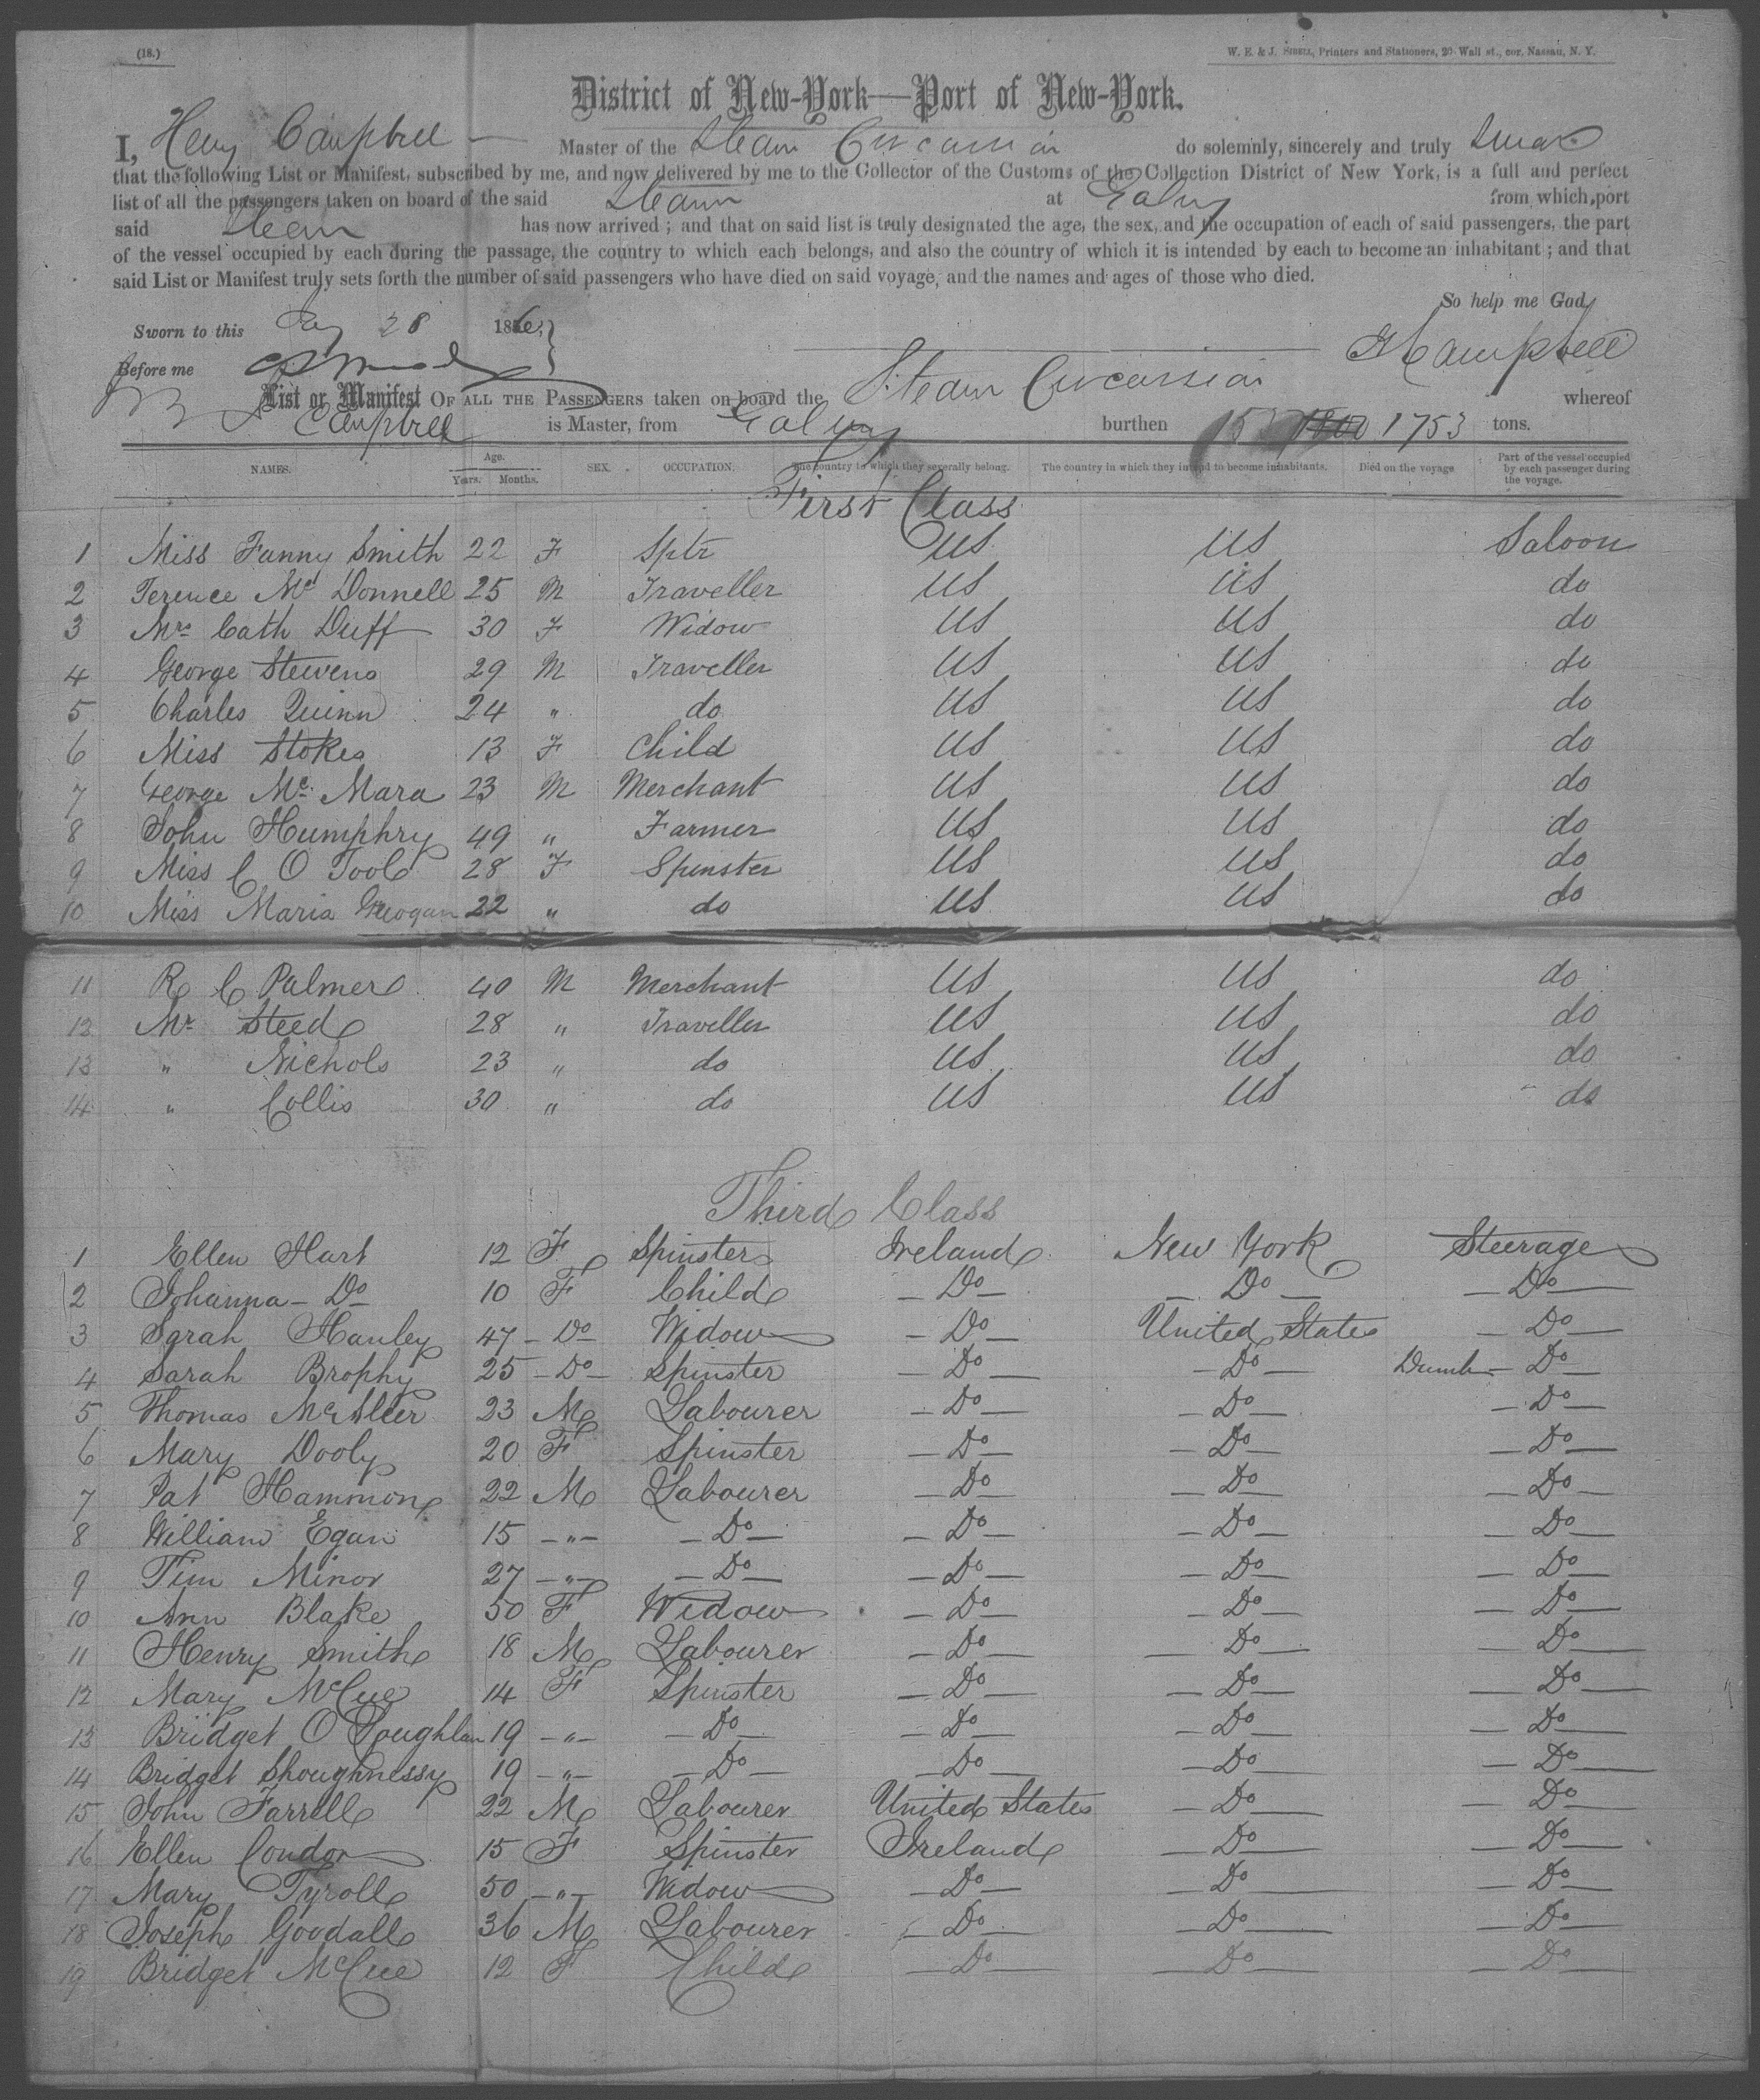 (18.)
W. E. & J. SIBELL, Printers and Stationers, 20 Wall st., cor. Nassau, N. Y.
District of New-York—Port of New-York.
I, Henry Campbell Master of the Steam Circassian do solemnly, sincerely and truly swear
that the following List or Manifest, subscribed by me, and now delivered by me to the Collector of the Customs of the Collection District of New York, is a full and perfect
list of all the passengers taken on board of the said Steam at Galway from which port
said Steam has now arrived ; and that on said list is truly designated the age, the sex, and the occupation of each of said passengers, the part
of the vessel occupied by each during the passage, the country to which each belongs, and also the country of which it is intended by each to become an inhabitant ; and that
said List or Manifest truly sets forth the number of said passengers who have died on said voyage, and the names and ages of those who died.
So help me God,
Sworn to this 28 186
HCampbell
Before me
List or Manifest OF ALL THE PASSENGERS taken on board the Steam Circassian whereof
Campbell is Master, from Galway burthen 1753 tons.
NAMES. Age. Years. Months. SEX. OCCUPATION. The country to which they severally belong. The country in which they intend to become inhabitants. Died on the voyage Part of the vessel occupied by each passenger during the voyage.
First Class
1 Miss Fanny Smith 22 F Sptr US US Saloon
2 Terence Mc Donnell 25 M Traveller US US do
3 Mrs Cath Duff 30 F Widow US US do
4 George Stevens 29 M Traveller US US do
5 Charles Quinn 24 " do US US do
6 Miss Stokes 13 F Child US US do
7 George Mc Mara 23 M Merchant US US do
8 John Humphry 49 " Farmer US US do
9 Miss C O Toole 28 F Spinster US US do
10 Miss Maria Geogan 22 " do US US do
11 R C Palmer 40 M Merchant US US do
12 Mr Steed 28 " Traveller US US do
13 " Nichols 23 " do US US do
14 " Collis 30 " do US US do
Third Class
1 Ellen Hart 12 F Spinster Ireland New York Steerage
2 Johanna - Do 10 F Child Do Do Do
3 Sarah Hanley 47 Do Widow Do United States Do
4 Sarah Brophy 25 Do Spinster Do Do Dumb Do
5 Thomas McAleer 23 M Labourer Do Do Do
6 Mary Dooly 20 F Spinster Do Do Do
7 Pat Hammon 22 M Labourer Do Do Do
8 William Egan 15 " Do Do Do Do
9 Tim Minor 27 " Do Do Do Do
10 Ann Blake 50 F Widow Do Do Do
11 Henry Smith 18 M Labourer Do Do Do
12 Mary McCue 14 F Spinster Do Do Do
13 Bridget O Loughlan 19 " Do Do Do Do
14 Bridget Shoughnessy 19 " Do Do Do Do
15 John Farrell 22 M Labourer United States Do Do
16 Ellen Condon 15 F Spinster Ireland Do Do
17 Mary Tyroll 50 " Widow Do Do Do
18 Joseph Goodall 36 M Labourer Do Do Do
19 Bridget McCue 12 F Child Do Do Do